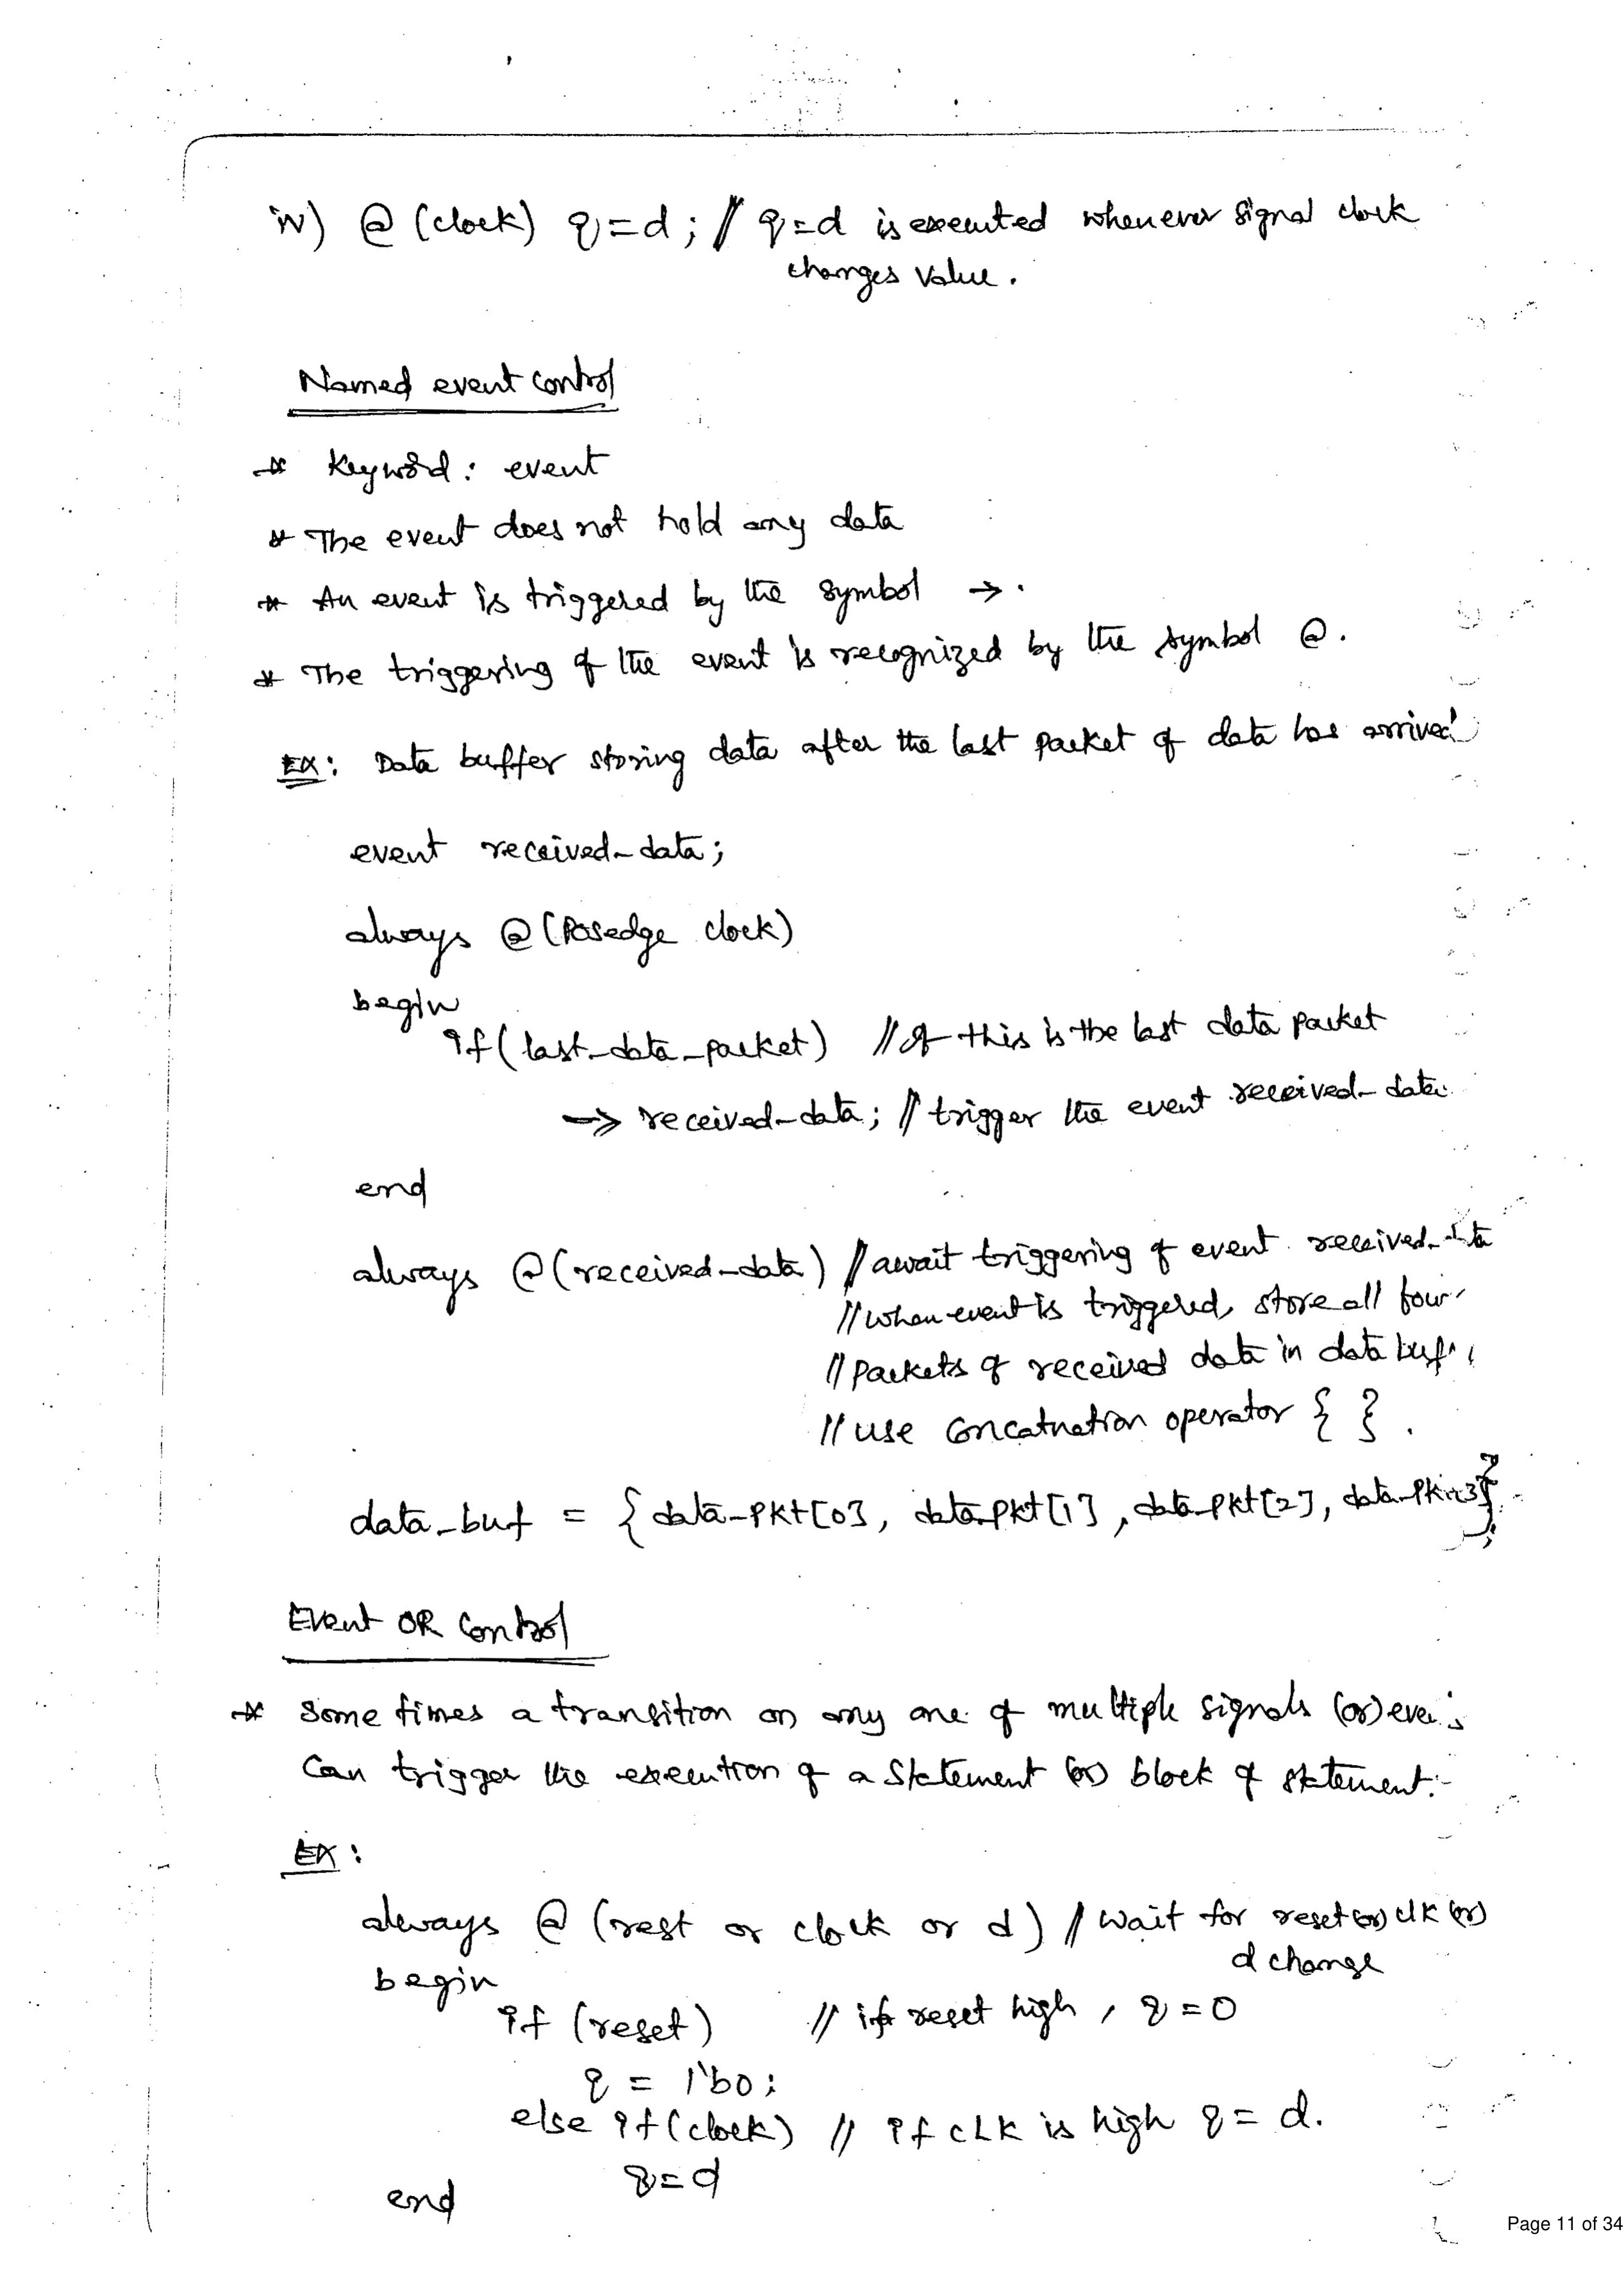 iv) @ (clock) q = d ; // q = d is executed whenever signal clock
changes value.
Named event control
* Keyword : event
* The event does not hold any data
* An event is triggered by the symbol → .
* The triggering of the event is recognized by the symbol @ .
EX : Data buffer storing data after the last packet of data has arrived
event received_data ;
always @ (Posedge clock)
begin
if ( last_data_packet ) // If this is the last data packet
→ received_data ; // trigger the event received_data
end
always @ (received_data) // await triggering of event received_data
// when event is triggered, store all four
// packets of received data in data buf
// use concatnation operator { } .
data_buf = { data_pkt[0], data_pkt[1], data_pkt[2], data_pkt[3] } ;
Event OR control
* Some times a transition on any one of multiple signals (or)
Can trigger the execution of a statement (or) block of statement
EX :
always @ (rest or clock or d ) // wait for reset (or) clk (or)
d change
begin
if (reset) // if reset high , q = 0
q = 1'b0 ;
else if (clock) // if cLK is high q = d.
q = d
end
Page 11 of 34